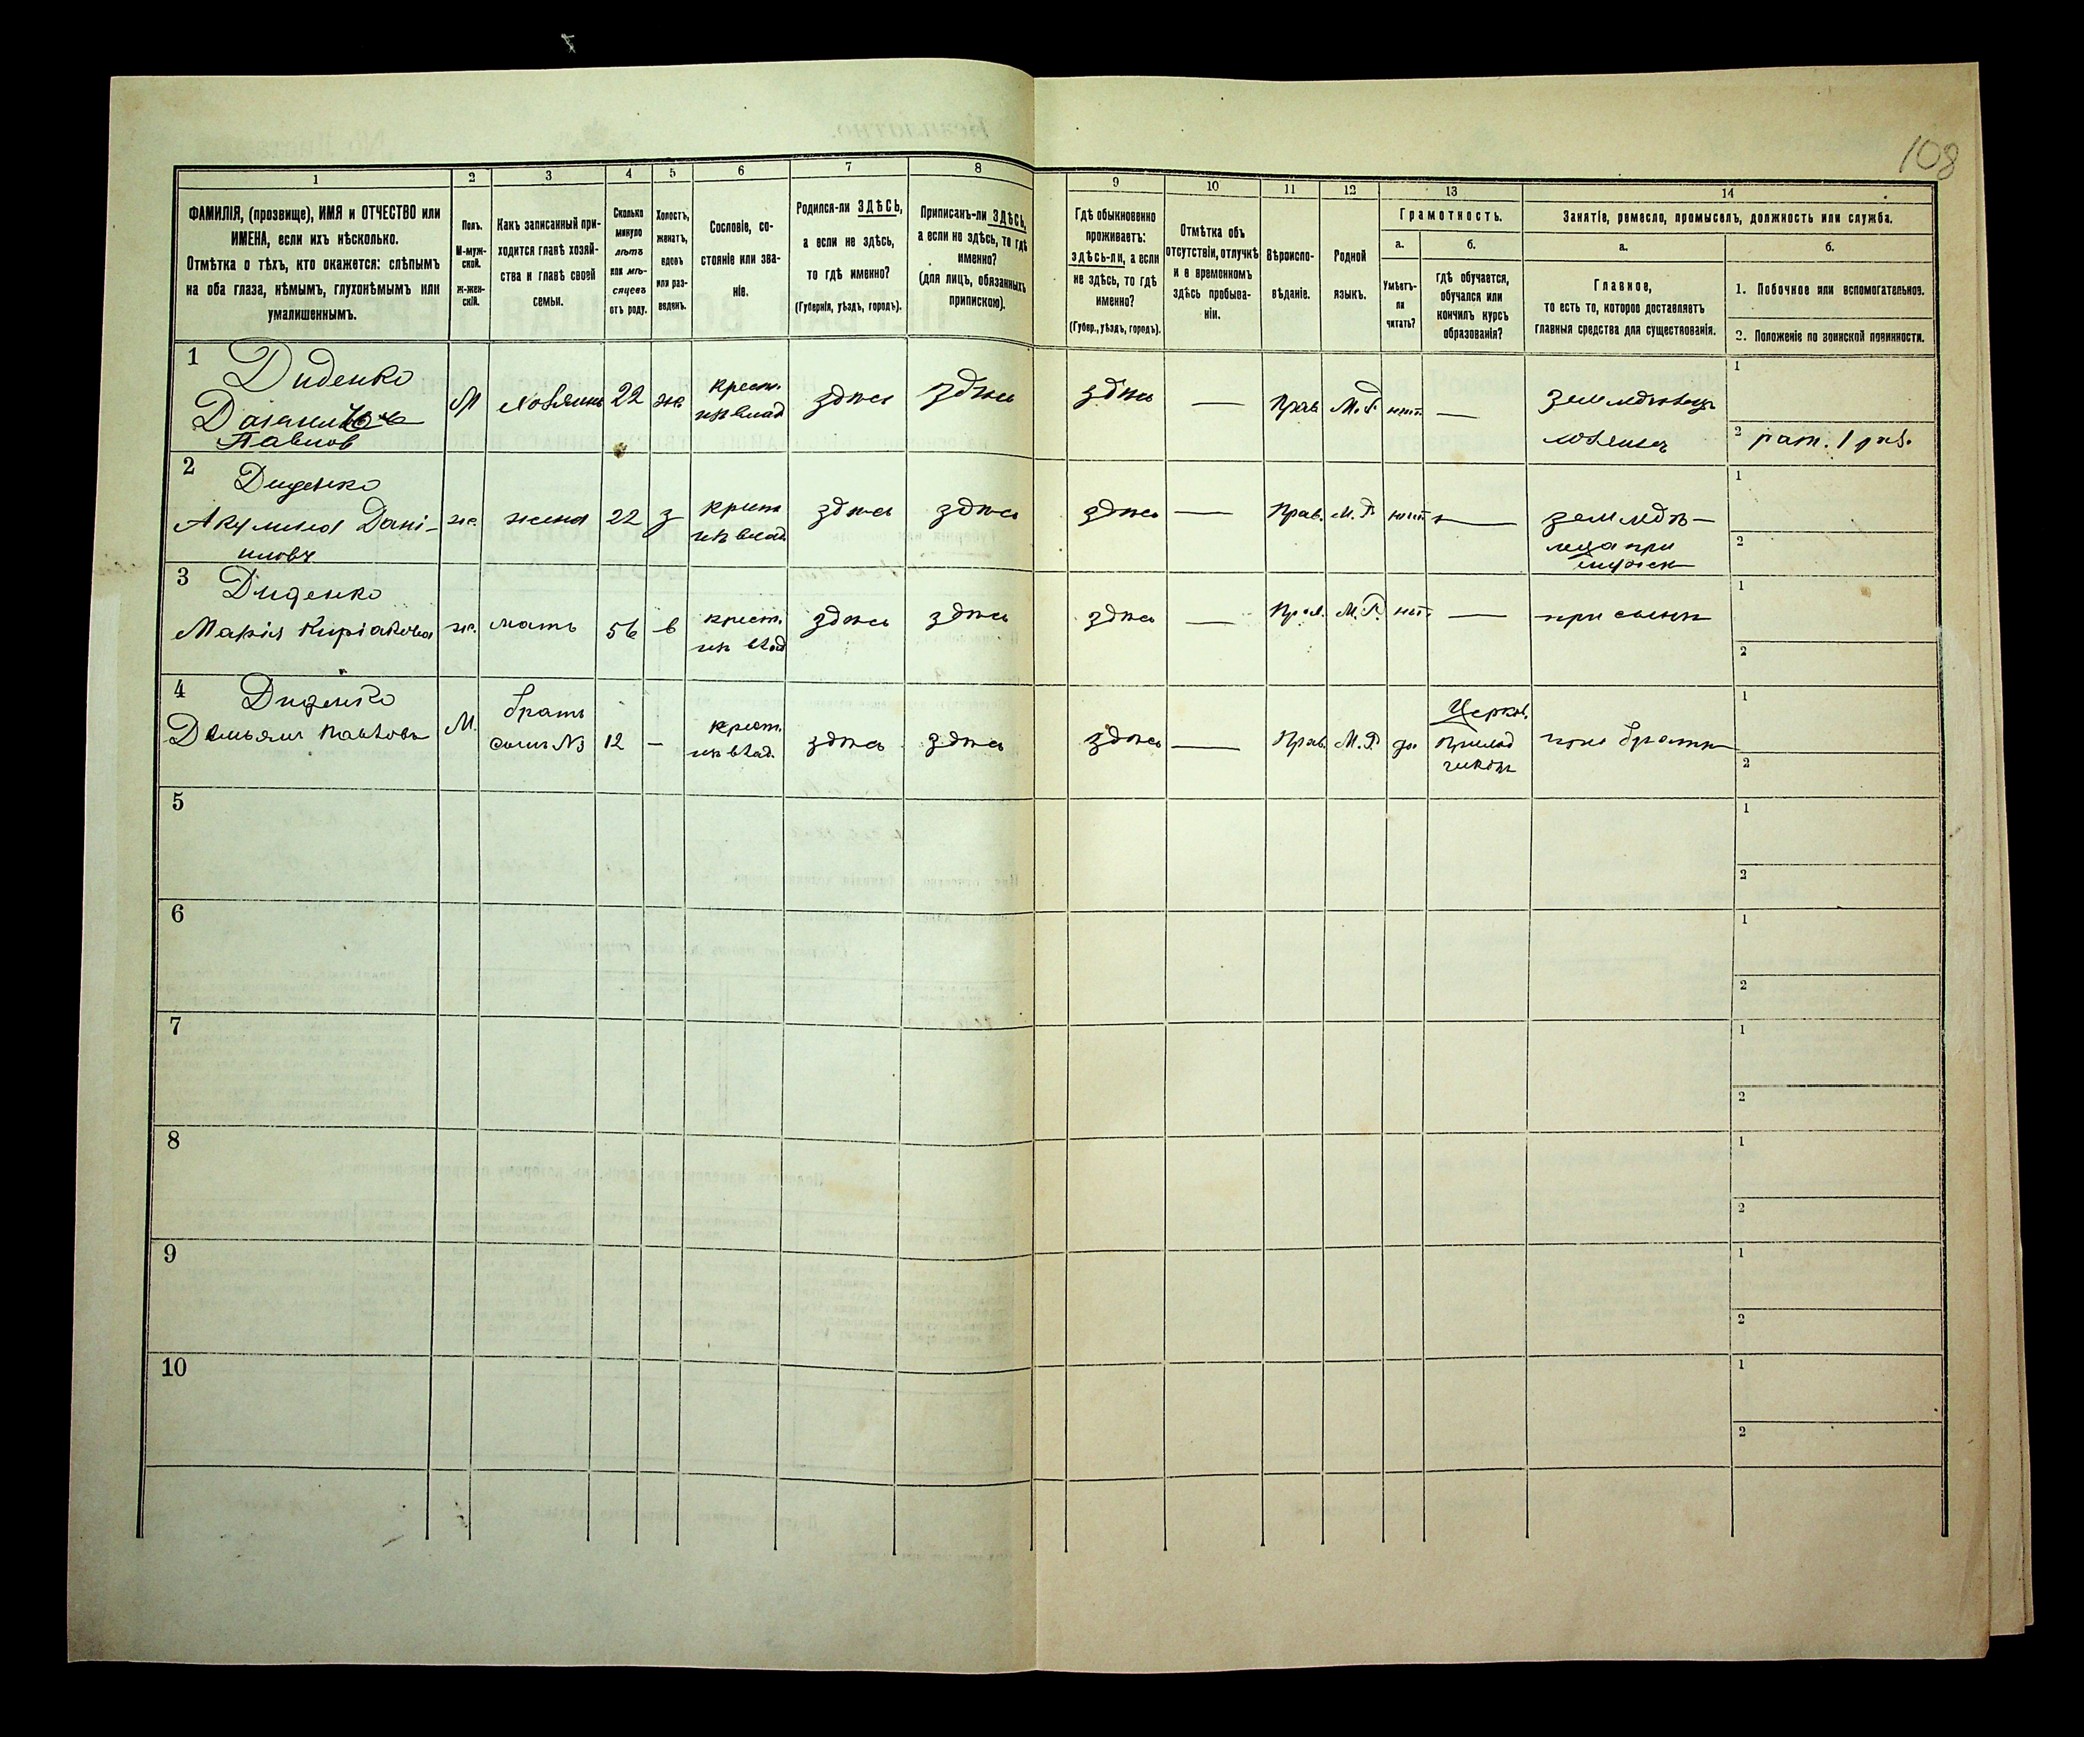 108
1
2
3
4
5
6
7
8
9
10
11
12
13
14
ФАМИЛІЯ, (прозвище), ИМЯ и ОТЧЕСТВО или
ИМЕНА, если ихъ нѣсколько.
Отмѣтка о тѣхъ, кто окажется: слѣпымъ
на оба глаза, нѣмымъ, глухонѣмымъ или
умалишеннымъ.
Полъ.
М-муж-
ской.
ж-жен-
скій.
Какъ записанный при-
ходится главѣ хозяй-
ства и главѣ своей
семьи.
Сколько
минуло
лѣтъ
или мѣ-
сяцевъ
отъ роду.
Холостъ,
женатъ,
вдовъ
или раз-
веденъ.
Сословіе, со-
стояніе или зва-
ніе.
Родился-ли ЗДѢСЬ,
а если не здѣсь,
то гдѣ именно?
(Губернія, уѣздъ, городъ).
Приписанъ-ли ЗДѢСЬ,
а если не здѣсь, то гдѣ
именно?
(для лицъ, обязанныхъ
припискою).
Гдѣ обыкновенно
проживаетъ:
здѣсь-ли, а если
не здѣсь, то гдѣ
именно?
(Губер., уѣздъ, городъ).
Отмѣтка объ
отсутствіи, отлучкѣ
и о временномъ
здѣсь пребыва-
ніи.
Вѣроиспо-
вѣданіе.
Родной
языкъ.
Грамотность.
а.
Умѣетъ-
ли
читать?
б.
гдѣ обучается,
обучался или
кончилъ курсъ
образованія?
Занятіе, ремесло, промыселъ, должность или служба.
а.
Главное,
то есть то, которое доставляетъ
главныя средства для существованія.
б.
1. Побочное или вспомогательное.
2. Положеніе по воинской повинности.
1
Диденко
Павлов
М
22
же
крест.
здѣсь
здѣсь
здѣсь
—
Прав
М.Р.
нѣт.
—
1
2 рат. 1 раз.
2
Диденко
Акулина Дані-
илова
ж.
жена
22
з
крест
здѣсь
здѣсь
здѣсь
—
Прав.
М.Р.
нѣт
—
земледѣ-
лица при
1
2
3
Диденко
Марія Киріакова
ж.
мать
56
в
крест.
здѣсь
здѣсь
здѣсь
—
Прав.
М.Р.
нѣт.
—
при сынѣ
1
2
4
Диденко
Демьянъ Павловъ
М.
братъ
сынъ №3
12
—
крест.
здѣсь
здѣсь
здѣсь
—
Прав.
М.Р.
да
Церков.
при братѣ
1
2
5
1
2
6
1
2
7
1
2
8
1
2
9
1
2
10
1
2